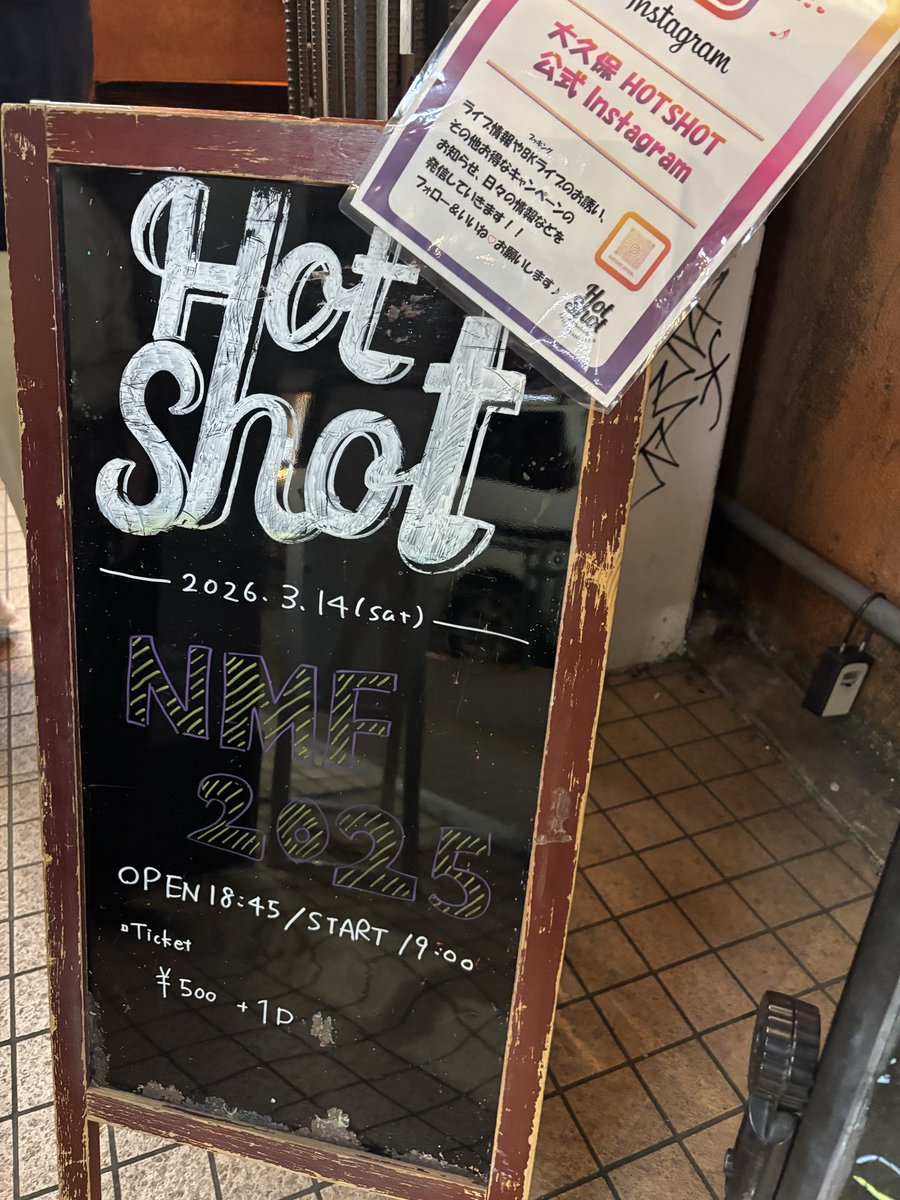 Instagram
大久保 HOTSHOT
公式 Instagram
ライブ情報やBKライブのお誘い、
ブッキング
その他お得なキャンペーンの
お知らせ、日々の情報などを
発信していきます！！
フォロー&いいね♡お願いします♪
Hot
Shot
Hot
Shot
2026.3.14(sat)
NMF
2025
OPEN 18:45/START 19:00
Ticket
¥500 +1D